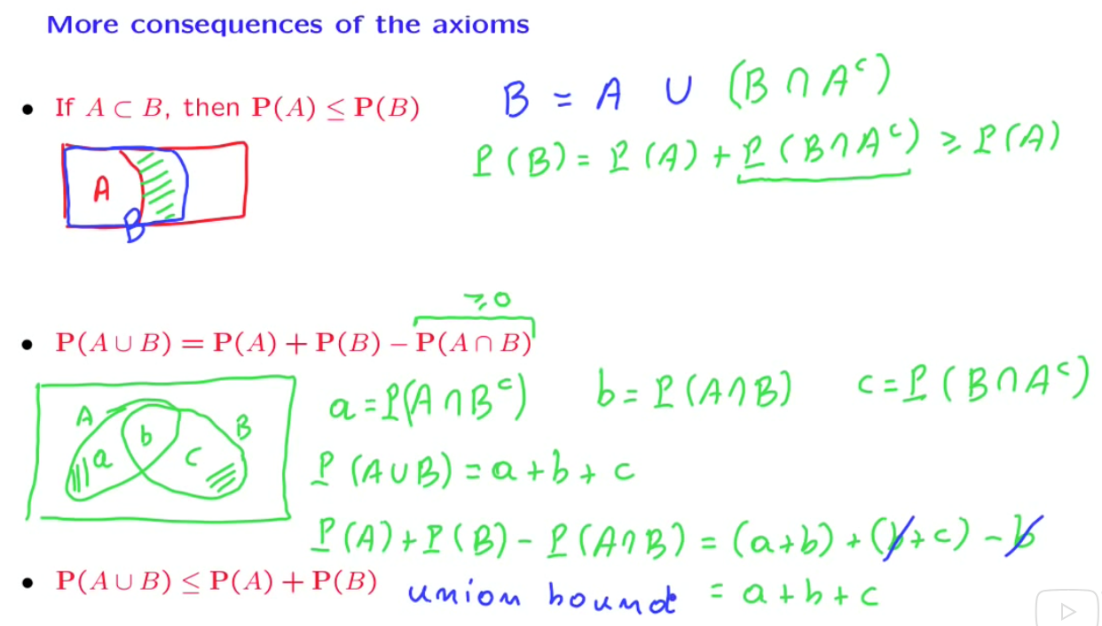 More consequences of the axioms
• If A ⊂ B, then P(A) ≤ P(B)
B = A ∪ (B ∩ Aᶜ)
P(B) = P(A) + P(B ∩ Aᶜ) ≥ P(A)
A
B
≥ 0
• P(A ∪ B) = P(A) + P(B) − P(A ∩ B)
A
B
a
b
c
a = P(A ∩ Bᶜ) b = P(A ∩ B) c = P(B ∩ Aᶜ)
P(A ∪ B) = a + b + c
P(A) + P(B) − P(A ∩ B) = (a + b) + (b + c) − b
• P(A ∪ B) ≤ P(A) + P(B) union bound = a + b + c